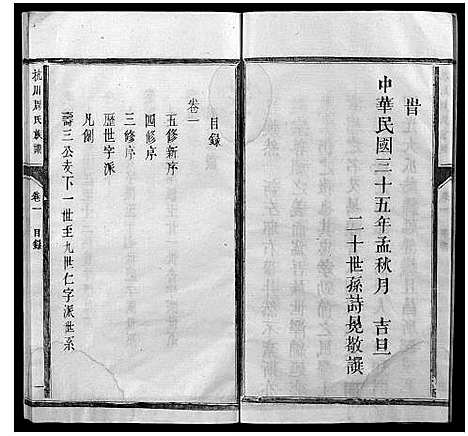 旹
中華民國三十五年孟秋月　吉旦
二十世孫詩晃敬譔
目錄
卷一
五修新序
四修序
三修序
歷世字派
凡例
壽三公支下一世至九世仁字派世系
杭川周氏族譜
卷一
目錄
一